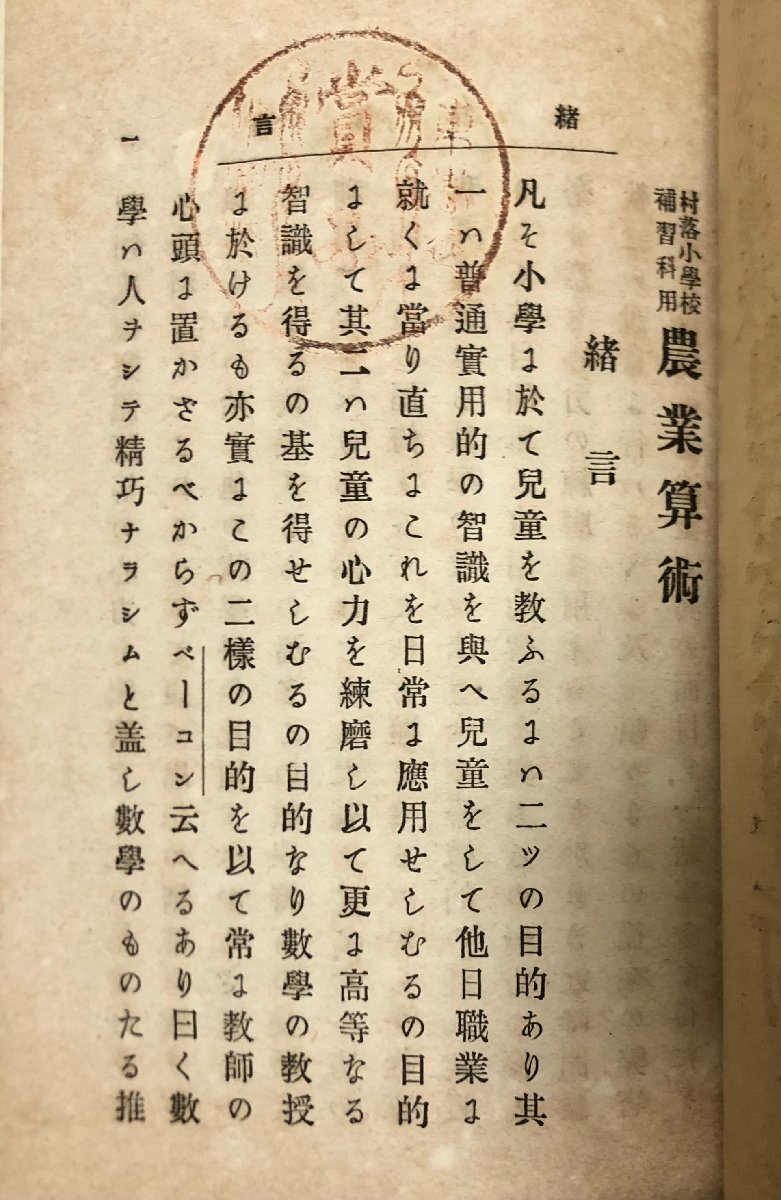 緒言
村落小學校
補習科用
農業算術
緒言
凡そ小學に於て兒童を教ふるにハ二ツの目的あり其
一ハ普通實用的の智識を與へ兒童をして他日職業に
就くに當り直ちにこれを日常に應用せしむるの目的
にして其二ハ兒童の心力を練磨し以て更に高等なる
智識を得るの基を得せしむるの目的なり數學の教授
に於けるも亦實にこの二樣の目的を以て常に教師の
心頭に置かざるべからずベーコン云へるあり曰く數
學ハ人ヲシテ精巧ナラシムと盖し數學のものたる推
一